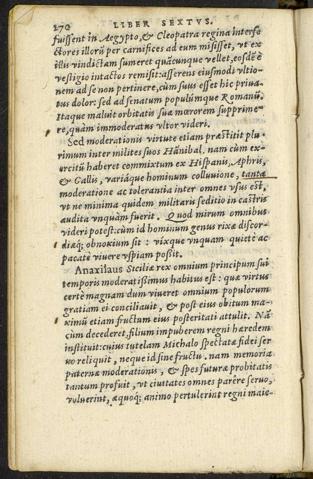 270 LIBER SEXTVS.
fuissent in Aegypto, & Cleopatra regina interfe
ctores illorũ per carnifices ad eum misisset, vt ex
illis vindictam sumeret quãcunque vellet, eosdẽ è
vestigio intactos remisit: asserens eiusmodi vltio-
nem ad se non pertinere, cùm suus esset hic priua-
tus dolor: sed ad senatum populúmque Romanũ.
Itaque maluit orbitatis suæ mœrorem supprime-
re, quàm immoderatus vltor videri.
Sed moderationis virtute etiam præstitit plu-
rimum inter milites suos Hãnibal. nam cùm ex-
ercitũ haberet commixtum ex Hispanis, Aphris,
& Gallis, variáque hominum colluuione, tanta
moderatione ac tolerantia inter omnes vsus est,
vt ne minima quidem militaris seditio in castris
audita vnquàm fuerit. Quod mirum omnibus
videri potest: cùm id hominum genus rixæ discor-
diæq; obnoxium sit: vixque vnquam quietè ac
pacatè viuere vspiam possit.
Anaxilaus Siciliæ rex omnium principum sui
temporis moderatissimus habitus est: quæ virtus
certè magnam dum viueret omnium populorum
gratiam ei conciliauit, & post eius obitum ma-
ximũ etiam fructum eius posteritati attulit. Nã
cùm decederet, filium impuberem regni hæredem
instituit: cuius tutelam Michalo spectatæ fidei ser
uo reliquit, neque id sine fructu. nam memoria
paternæ moderationis, & spes futuræ probitatis
tantum profuit, vt ciuitates omnes parêre seruo,
voluerint, æquoq; animo pertulerint regni maie-